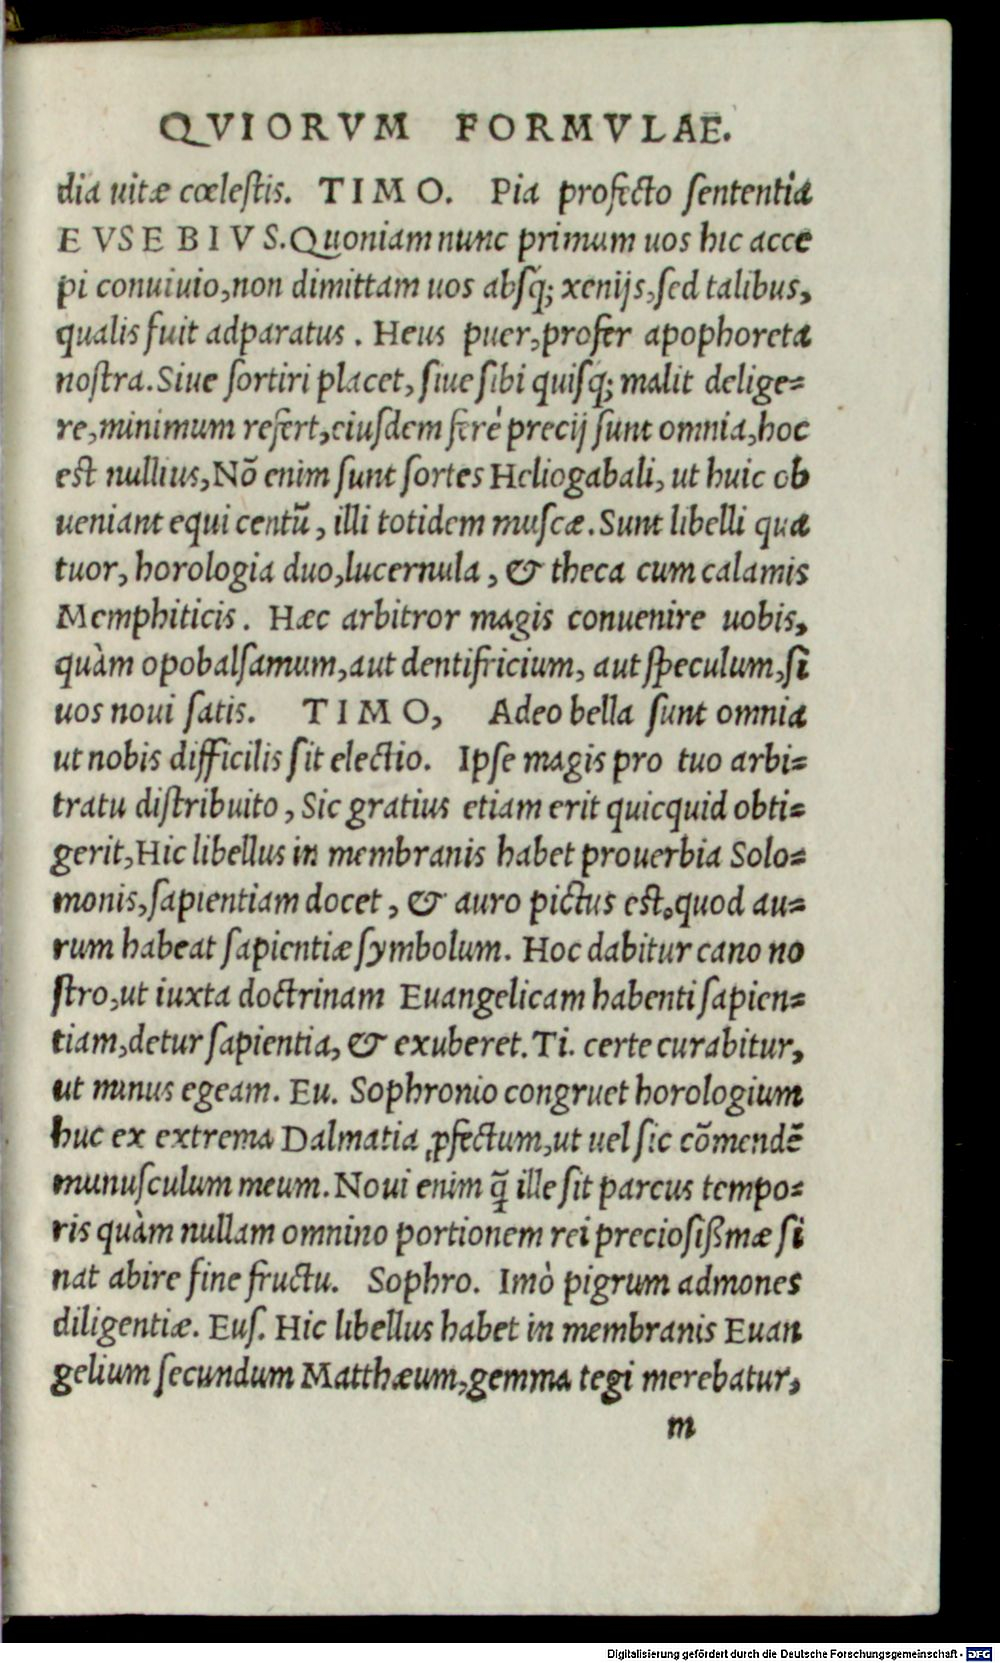 QVIORVM FORMVLAE.
dia uitæ cœlestis. TIMO. Pia profecto sententia
EVSEBIVS. Quoniam nunc primum uos hic acce
pi conuiuio, non dimittam uos absq; xenijs, sed talibus,
qualis fuit adparatus. Heus puer, profer apophoreta
nostra. Siue sortiri placet, siue sibi quisq; malit delige=
re, minimum refert, eiusdem ferè precij sunt omnia, hoc
est nullius, Nō enim sunt sortes Heliogabali, ut huic ob
ueniant equi centū, illi totidem muscæ. Sunt libelli qua
tuor, horologia duo, lucernula, & theca cum calamis
Memphiticis. Hæc arbitror magis conuenire uobis,
quàm opobalsamum, aut dentifricium, aut speculum, si
uos noui satis. TIMO, Adeo bella sunt omnia
ut nobis difficilis sit electio. Ipse magis pro tuo arbi=
tratu distribuito, Sic gratius etiam erit quicquid obti=
gerit, Hic libellus in membranis habet prouerbia Solo=
monis, sapientiam docet, & auro pictus est. quod au=
rum habeat sapientiæ symbolum. Hoc dabitur cano no
stro, ut iuxta doctrinam Euangelicam habenti sapien=
tiam, detur sapientia, & exuberet. Ti. certe curabitur,
ut minus egeam. Eu. Sophronio congruet horologium
huc ex extrema Dalmatia ꝓfectum, ut uel sic cōmendē
munusculum meum. Noui enim q̄ ille sit parcus tempo=
ris quàm nullam omnino portionem rei preciosißmæ si
nat abire fine fructu. Sophro. Imò pigrum admones
diligentiæ. Eus. Hic libellus habet in membranis Euan
gelium secundum Matthæum, gemma tegi merebatur,
m
Digitalisierung gefördert durch die Deutsche Forschungsgemeinschaft - DFG